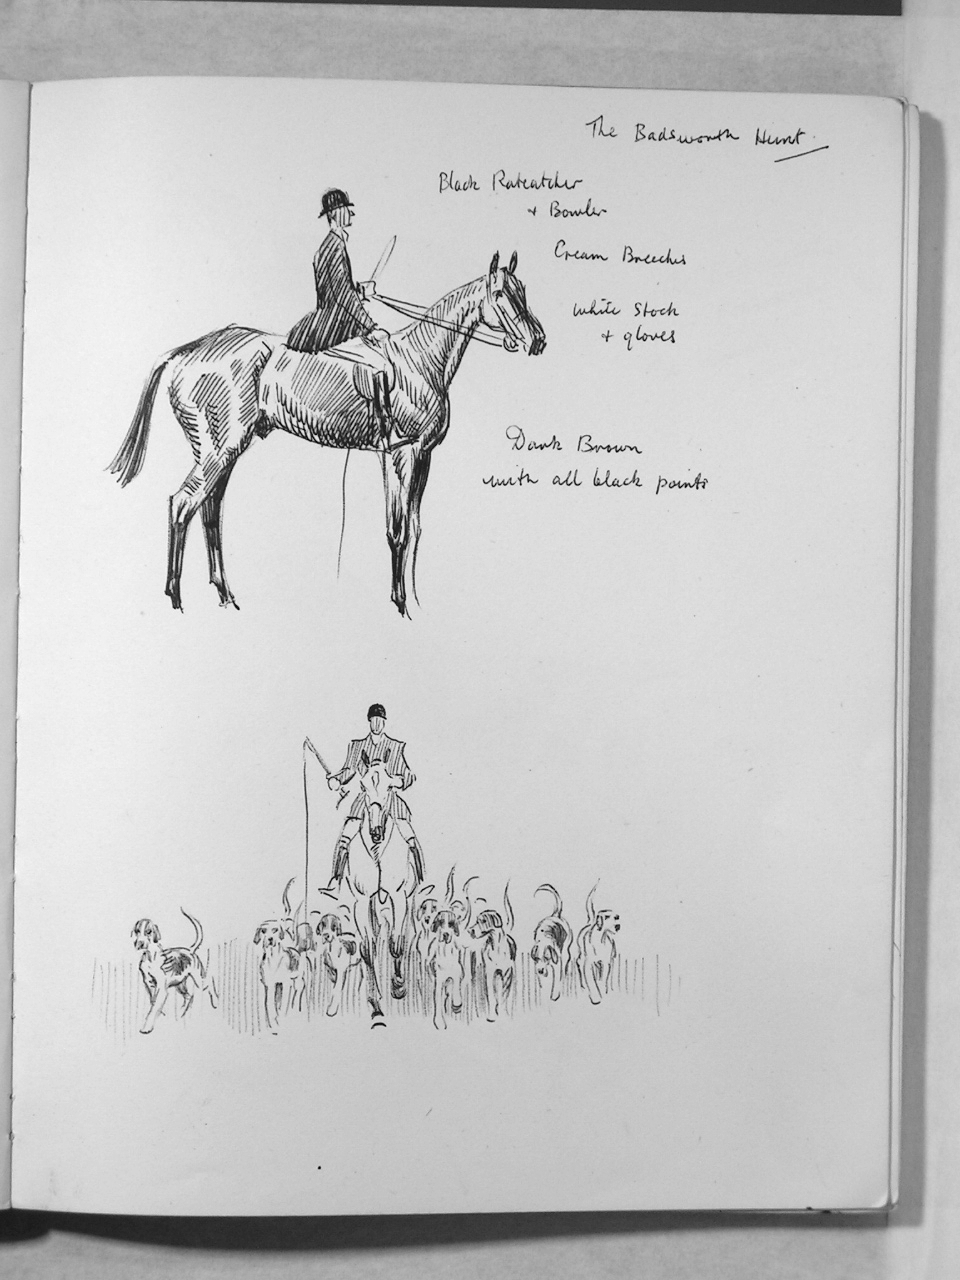 The Badsworth Hunt.
Black Ratcatcher
+ Bowler
Cream Breeches
White Stock
+ gloves
Dark Brown
with all black points